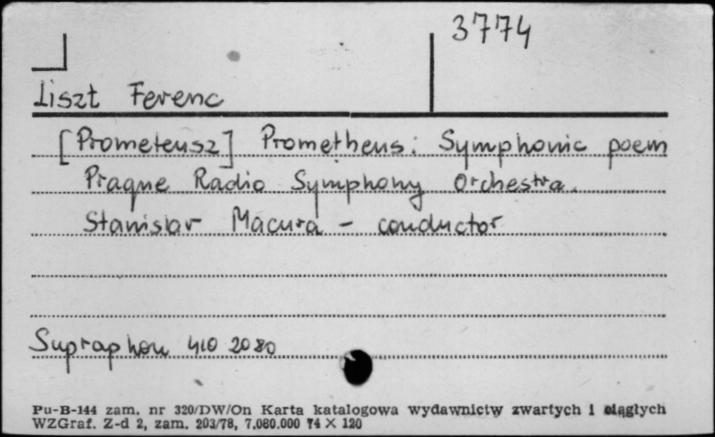 3774
Liszt Ferenc
[Prometeusz] Prometheus: Symphonic poem
Prague Radio Symphony Orchestra.
Stanislav Macura - conductor
Supraphon 410 2080
Pu-B-144 zam. nr 320/DW/On Karta katalogowa wydawnictw zwartych i ciągłych
WZGraf. Z-d 2, zam. 203/78, 7.080.000 74 X 120